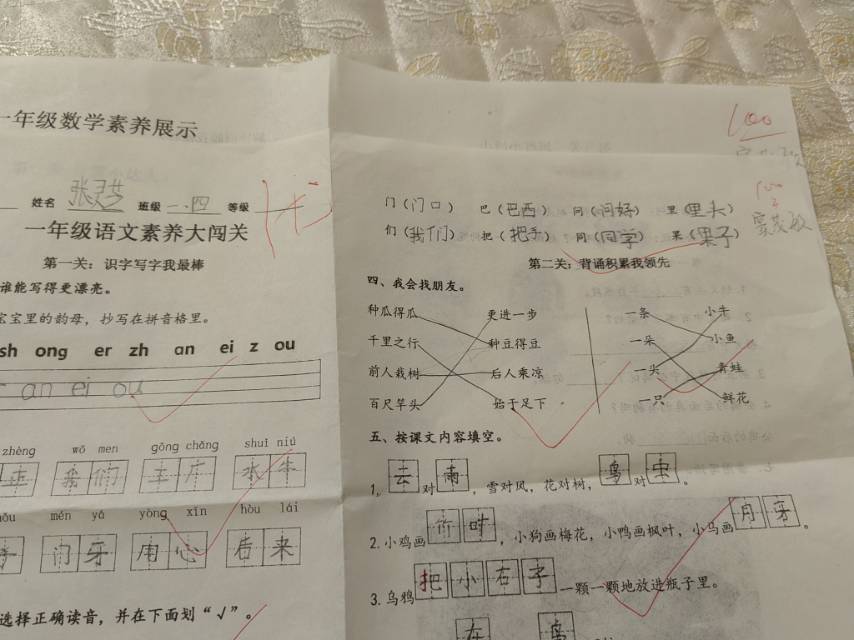 一年级数学素养展示
姓名 张 班级 一.四 等级
一年级语文素养大闯关
第一关：识字写字我最棒
谁能写得更漂亮。
宝宝里的韵母，抄写在拼音格里。
sh ong er zh an ei z ou
an ei ou
zhèng wǒ men gōng chǎng shuǐ niú
我们 工厂 水牛
mén yá yòng xīn hòu lái
门牙 用心 后来
选择正确读音，并在下面划“√”。
100
门（门口） 巴（巴西） 问（问好） 里（里头）
100
们（我们） 把（把手） 同（同学） 果（果子）
第二关：背诵积累我领先
四、我会找朋友。
种瓜得瓜 更进一步 一条 小牛
千里之行 种豆得豆 一朵 小鱼
前人栽树 后人乘凉 一头 青蛙
百尺竿头 始于足下 一只 鲜花
五、按课文内容填空。
1. 云对雨，雪对风，花对树，鸟对虫。
2. 小鸡画竹叶，小狗画梅花，小鸭画枫叶，小马画月牙。
3. 乌鸦把小石子一颗一颗地放进瓶子里。
在 鸟